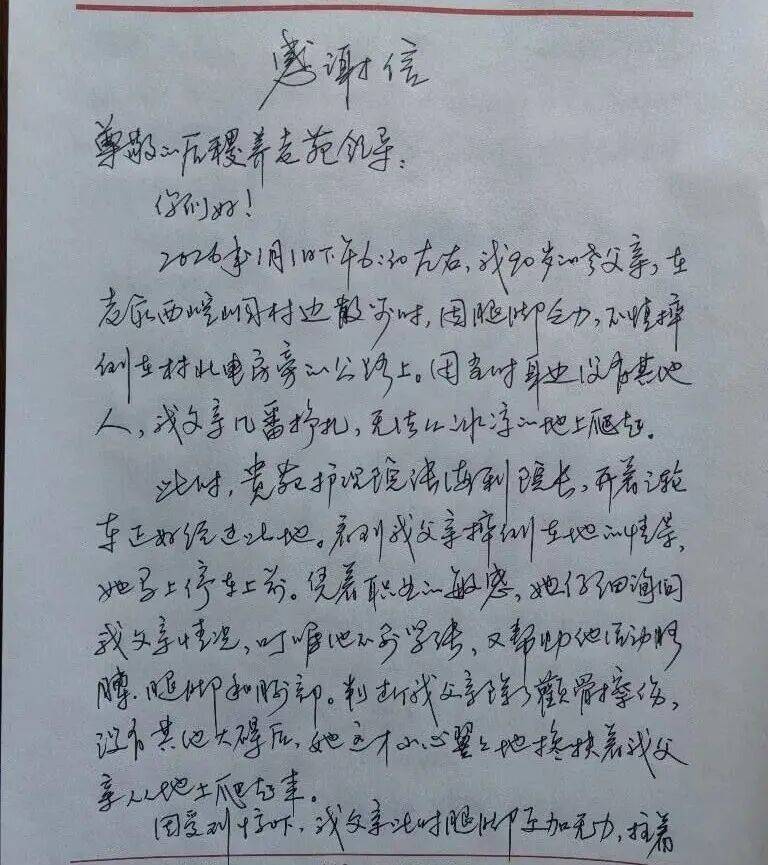 感谢信
尊敬的后稷养老苑领导：
你们好！
2026年1月1日下午6:30左右，我90岁的老父亲，在
老家西崆峒村边散步时，因腿脚乏力，不慎摔
倒在村北电房旁的公路上。因当时身边没有其他
人，我父亲几番挣扎，无法从冰凉的地上爬起。
此时，贵苑护理院张海利院长，开着三轮
车正好经过此地。看到我父亲摔倒在地的情景，
她马上停车上前。凭着职业的敏感，她仔细询问
我父亲情况，叮嘱他不必紧张，又帮助他活动胳
膊、腿脚和腰部。判断我父亲除了颧骨擦伤，
没有其他大碍后，她这才小心翼々地搀扶着我父
亲从地上爬起来。
因受到惊吓，我父亲此时腿脚更加无力，拄着